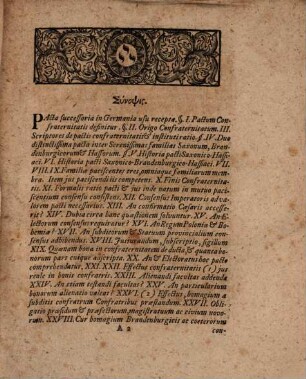 Σύνοψις.
PActa successoria in Germania usu recepta. §. I. Pactum Con-
fraternitatis definitur. §. II. Origo Confraternitatum. III.
Scriptores de pactis confraternitatis & instituti ratio. §. IV. Duo
distinctissima pacta inter Serenissimas familias Saxonum, Bran-
denburgicorum & Hassorum. §. V. Historia pacti Saxonico-Hassi-
aci. VI. Historia pacti Saxonico-Brandenburgico-Hassiaci. VII.
VIII. IX. Familiæ paciscentes tres, omniaque familiarum mem-
bra. Item jus paciscendi competens. X. Finis Confraternitatis.
XI. Formalis ratio pacti & jus inde natum in mutuo paci-
scentium consensu consistens. XII. Consensus Imperatoris ad va-
lorem pacti necessarius. XIII. An confirmatio Cæsaris acces-
serit? XIV. Dubia circa hanc quæstionem solvuntur. XV. An E-
lectorum consensus requiratur? XVI. An Regum Poloniæ & Bo-
hemiæ? XVII. An subditorum & Statuum provincialium con-
sensus adhibendus. XVIII. Jusjurandum, subscriptio, sigillum
XIX. Quænam bona in confraternitatem deducta, & quanta bo-
norum pars cuique adscripta. XX. An & Electoratus hoc pacto
comprehendatur. XXI. XXII. Effectus confraternitatis (1) jus
reale in bonis confratris. XXIII. Alienandi facultas adempta
XXIV. An etiam testandi facultas? XXV. An particularium
bonorum alienatio valeat? XXVI. (2) Effectus, homagium a
subditis confratrum Confratribus præstandum. XXVII. Obli-
gatio præsidum & præfectorum, magistratuum ac civium novo-
rum. XXVIII. Cur homagium Brandenburgicis ac cæterorum
A 2 con-